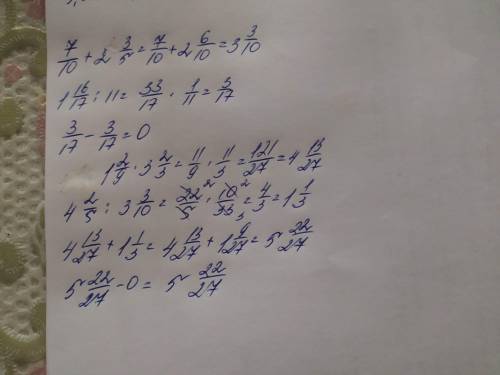 7/10 + 2 3/5 = 7/10 + 2 6/10 = 3 3/10
1 16/17 : 11 = 33/17 · 1/11 = 3/17
3/17 - 3/17 = 0
1 2/9 · 3 2/3 = 11/9 · 11/3 = 121/27 = 4 13/27
4 2/5 : 3 3/10 = 22/5 · 10/33 = 4/3 = 1 1/3
4 13/27 + 1 1/3 = 4 13/27 + 1 9/27 = 5 22/27
5 22/27 - 0 = 5 22/27